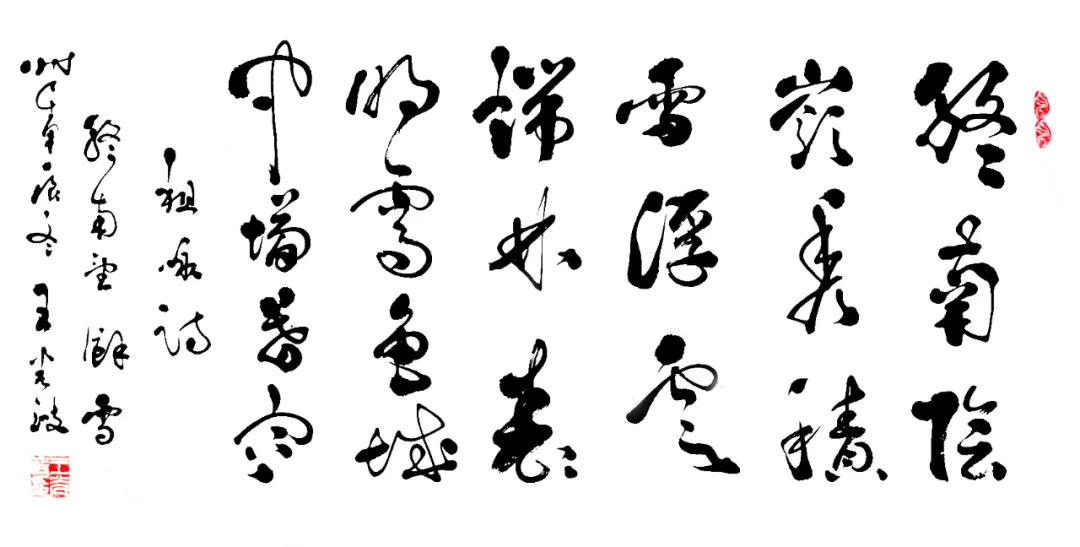 終南陰
嶺秀積
雪浮雲
端林表
明霽色城
中增暮寒
祖詠詩
終南望餘雪
冬 王